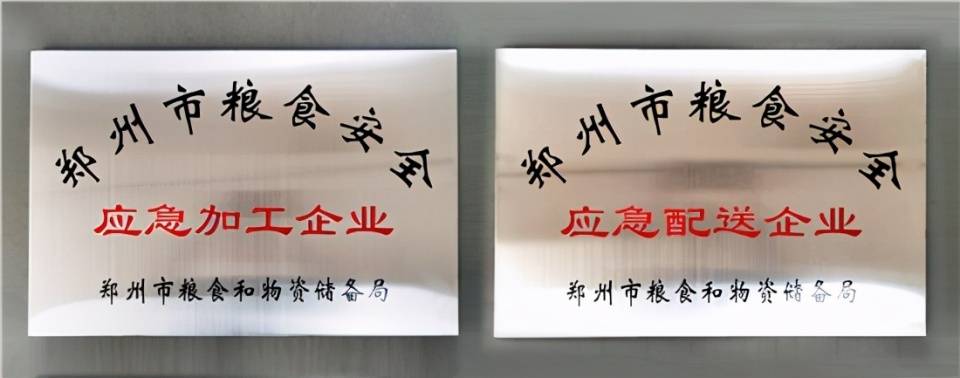 郑州市粮食安全
应急加工企业
郑州市粮食和物资储备局
郑州市粮食安全
应急配送企业
郑州市粮食和物资储备局